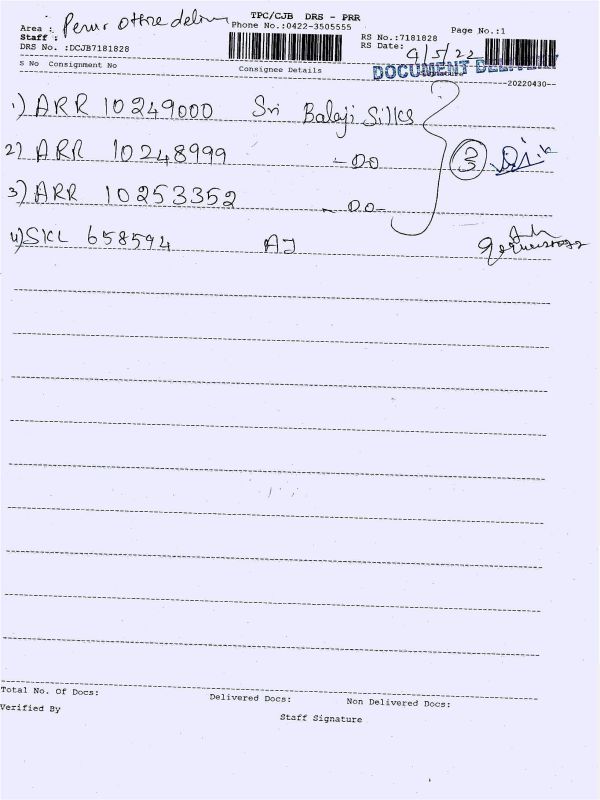 TPC/CJB DRS - PRR
Area : Perur Office delivery
Phone No.:0422-3505555
Page No.:1
Staff :
RS No.:7181828
DRS No. :DCJB7181828
RS Date: 9/5/22
DOCUMENT DELIVERY
S No Consignment No Consignee Details
--20220430--
1) ARR 10249000 Sri Balaji Silks
2) ARR 10248999 - DO
3
3) ARR 10253352 - DO-
4) SKL 658594 AJ
Total No. Of Docs: Delivered Docs: Non Delivered Docs:
Verified By Staff Signature